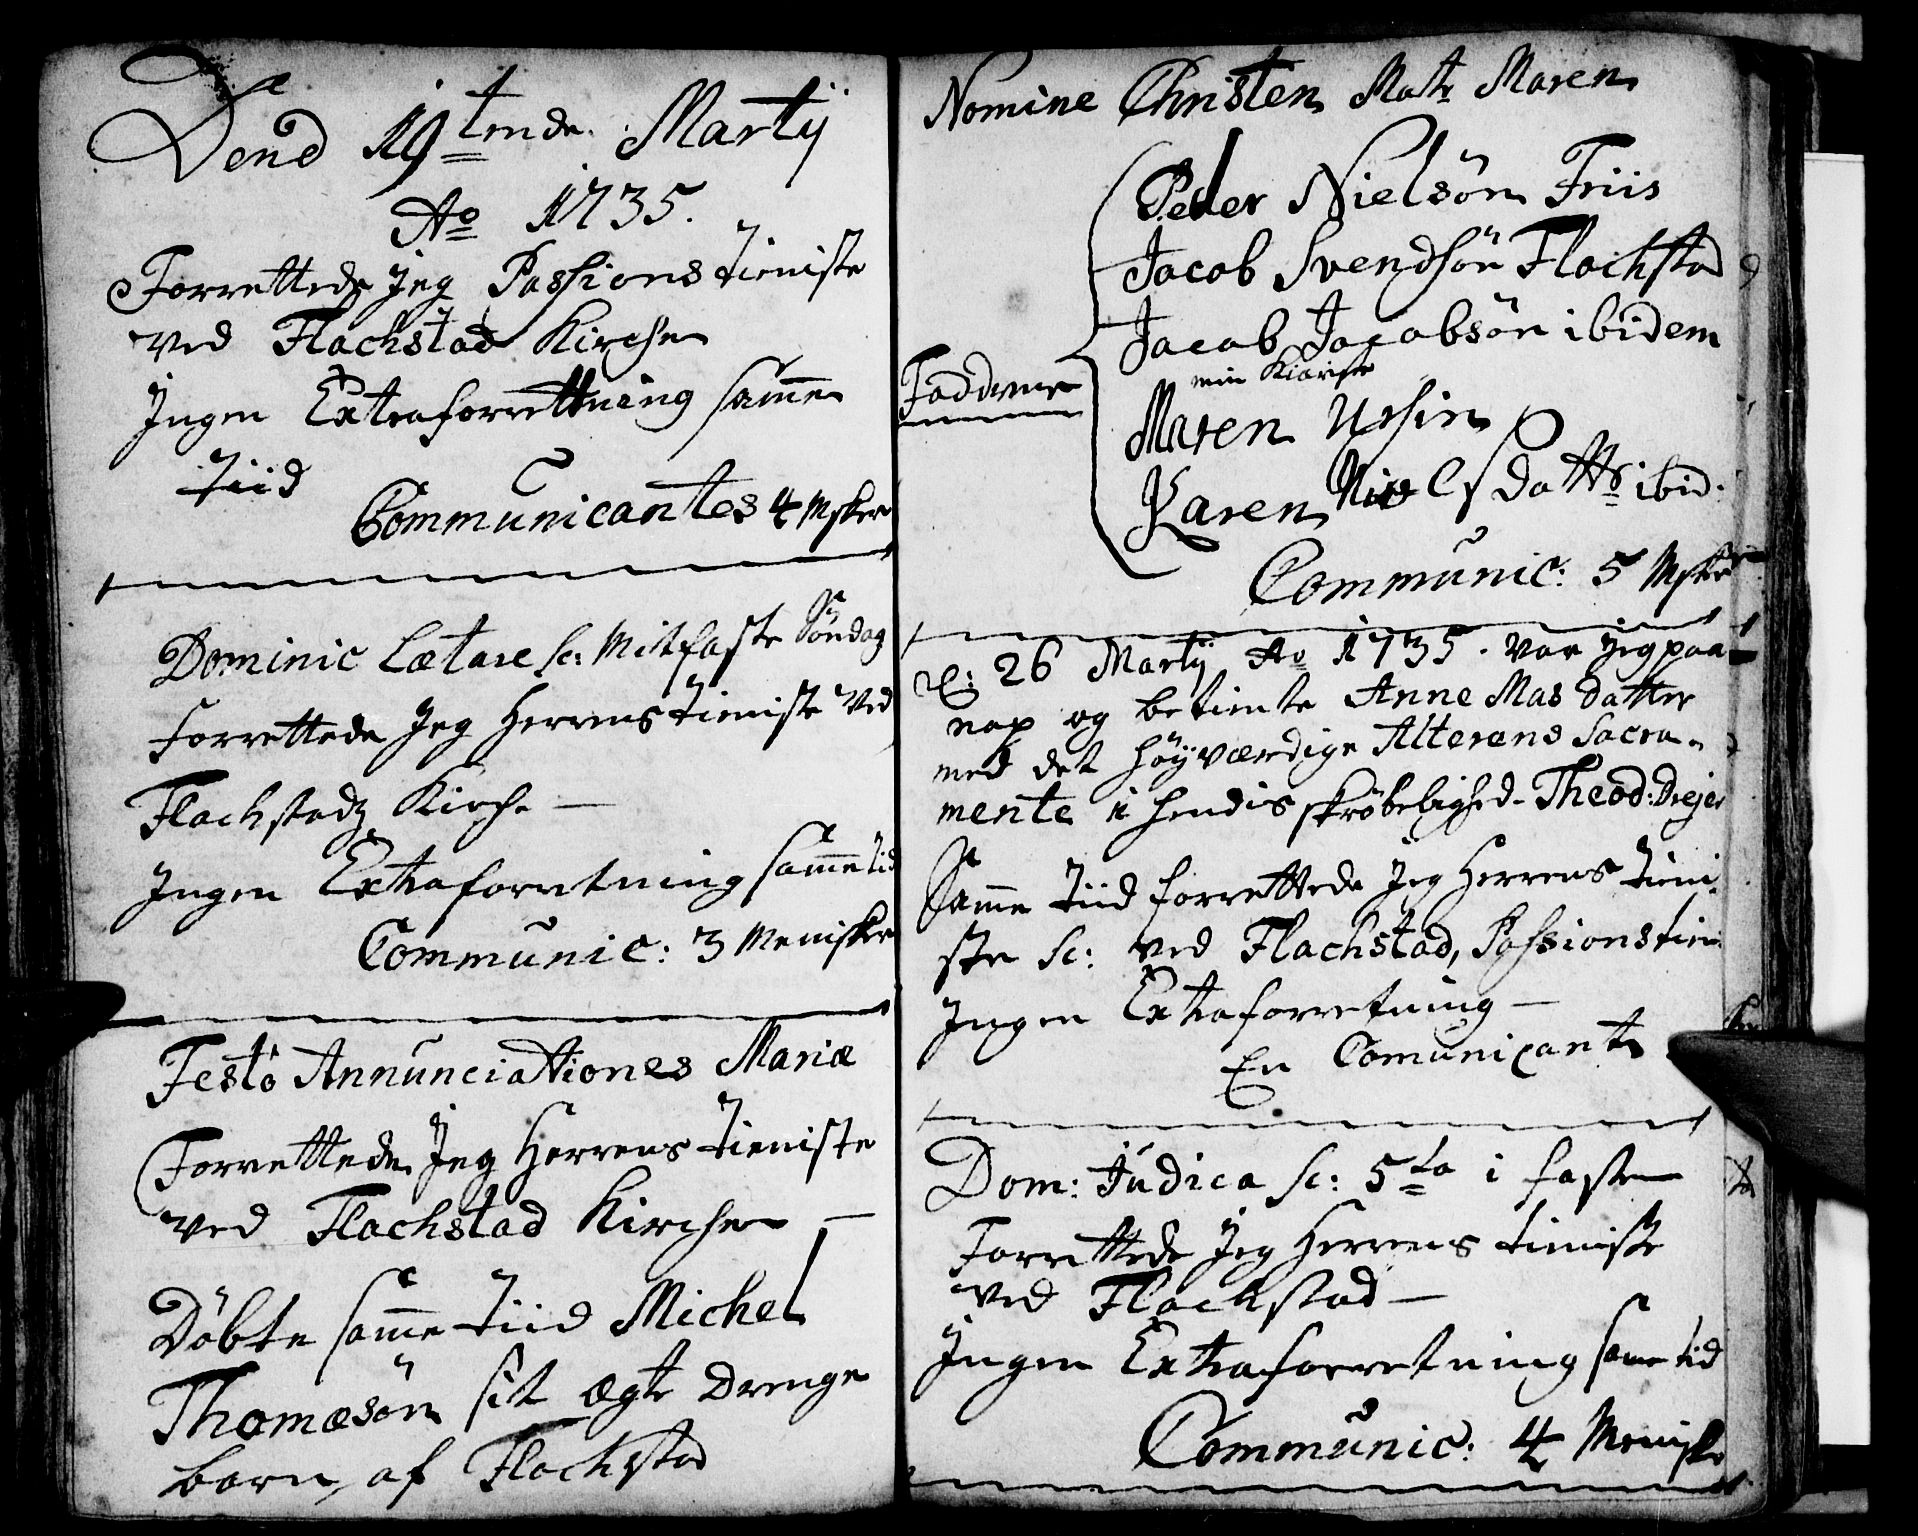 Dend 19tende Martij
Ao 1735.
Forrettede Jeg Passions tieniste
ved Flachstad Kirche
Ingen Extraforrettning samme
tiid
Communicantes 4 Msker
Dominic Lætare sc: Mitfaste Søndag
Forrettede Jeg Herrens tieniste ved
Flachstadz Kirche —
Ingen Extraforretning samme tid
Communic: 3 Menisker
Festo Annunciationes Mariæ
Forrettede Jeg Herrens tieniste
ved Flachstad Kirche —
Döbte samme tiid Michel
Thomæsön sit ægte Drenge
barn af Flachstad
Nomine Christen Mat: Maren
Peder Nielsön Friis
Jacob Svendsön Flachstad
Jacob Jacobsön ibidem
Fadderne
min Kiæriste
Maren Ursin
Karen Nielsdattr ibid.
Communic: 5 Msker
D: 26 Martij Ao 1735. var jeg paa
nap og betiente Anne Mas datter
med det höyværdige Alterens Sacra-
mente i hendis skröbelighed. Theod: Drejer
Samme tiid forrettede Jeg Herrens tieni-
ste sc: ved Flachstad, Passionstien:
Ingen Extraforretning —
En Comunicant
Dom: Judica sc: 5ta i fasten
Forrettede Jeg Herrens tieniste
ved Flachstad —
Ingen Extraforretning same tid
Communic: 4 Meniske